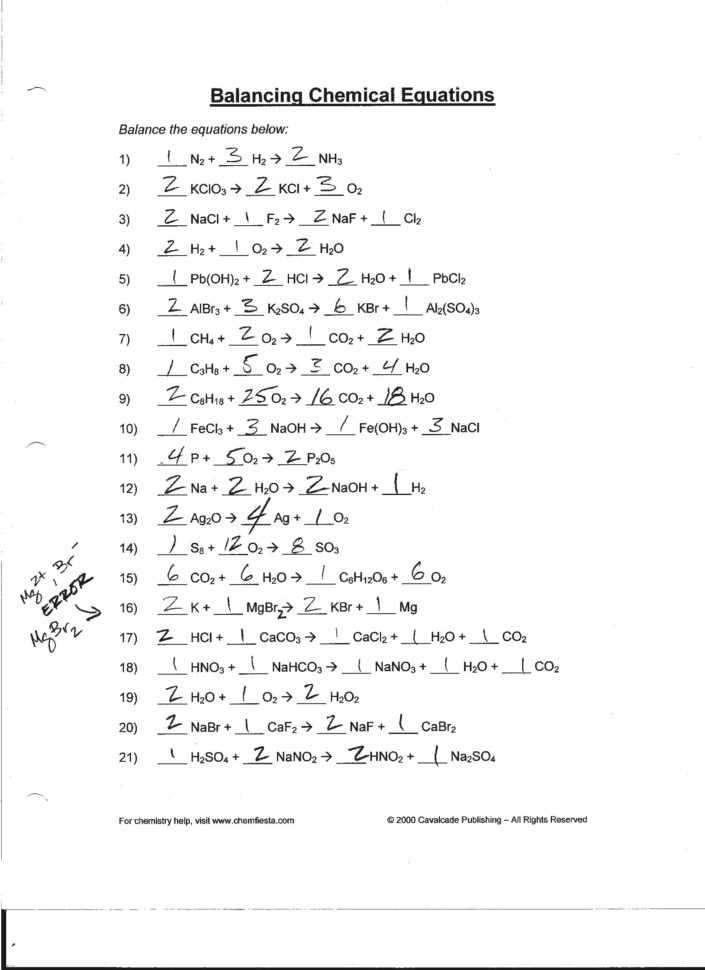 Balancing Chemical Equations
Balance the equations below:
1) 1 N₂ + 3 H₂ → 2 NH₃
2) 2 KClO₃ → 2 KCl + 3 O₂
3) 2 NaCl + 1 F₂ → 2 NaF + 1 Cl₂
4) 2 H₂ + 1 O₂ → 2 H₂O
5) 1 Pb(OH)₂ + 2 HCl → 2 H₂O + 1 PbCl₂
6) 2 AlBr₃ + 3 K₂SO₄ → 6 KBr + 1 Al₂(SO₄)₃
7) 1 CH₄ + 2 O₂ → 1 CO₂ + 2 H₂O
8) 1 C₃H₈ + 5 O₂ → 3 CO₂ + 4 H₂O
9) 2 C₈H₁₈ + 25 O₂ → 16 CO₂ + 18 H₂O
10) 1 FeCl₃ + 3 NaOH → 1 Fe(OH)₃ + 3 NaCl
11) 4 P + 5 O₂ → 2 P₂O₅
12) 2 Na + 2 H₂O → 2 NaOH + 1 H₂
13) 2 Ag₂O → 4 Ag + 1 O₂
14) 1 S₈ + 12 O₂ → 8 SO₃
15) 6 CO₂ + 6 H₂O → 1 C₆H₁₂O₆ + 6 O₂
Mg 2+, Br -
ERROR
MgBr₂
16) 2 K + 1 MgBr₂ → 2 KBr + 1 Mg
17) 2 HCl + 1 CaCO₃ → 1 CaCl₂ + 1 H₂O + 1 CO₂
18) 1 HNO₃ + 1 NaHCO₃ → 1 NaNO₃ + 1 H₂O + 1 CO₂
19) 2 H₂O + 1 O₂ → 2 H₂O₂
20) 2 NaBr + 1 CaF₂ → 2 NaF + 1 CaBr₂
21) 1 H₂SO₄ + 2 NaNO₂ → 2 HNO₂ + 1 Na₂SO₄
For chemistry help, visit www.chemfiesta.com © 2000 Cavalcade Publishing – All Rights Reserved